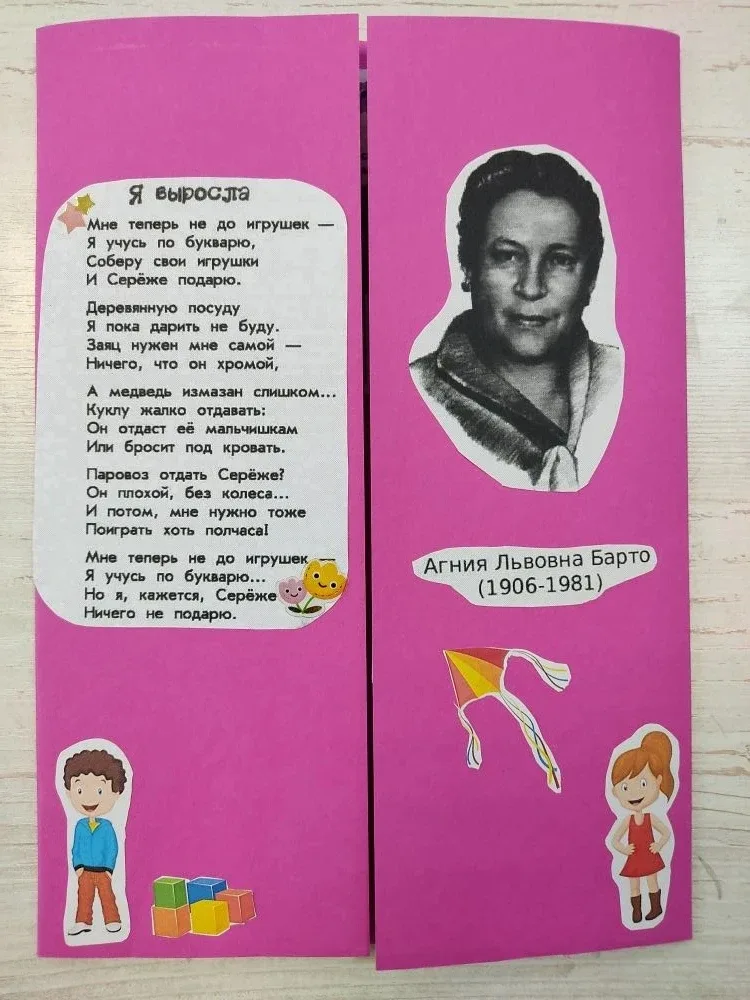 Я выросла
Мне теперь не до игрушек —
Я учусь по букварю,
Соберу свои игрушки
И Серёже подарю.
Деревянную посуду
Я пока дарить не буду.
Заяц нужен мне самой —
Ничего, что он хромой,
А медведь измазан слишком...
Куклу жалко отдавать:
Он отдаст её мальчишкам
Или бросит под кровать.
Паровоз отдать Серёже?
Он плохой, без колеса...
И потом, мне нужно тоже
Поиграть хоть полчаса!
Мне теперь не до игрушек
Я учусь по букварю...
Но я, кажется, Серёже
Ничего не подарю.
Агния Львовна Барто
(1906-1981)